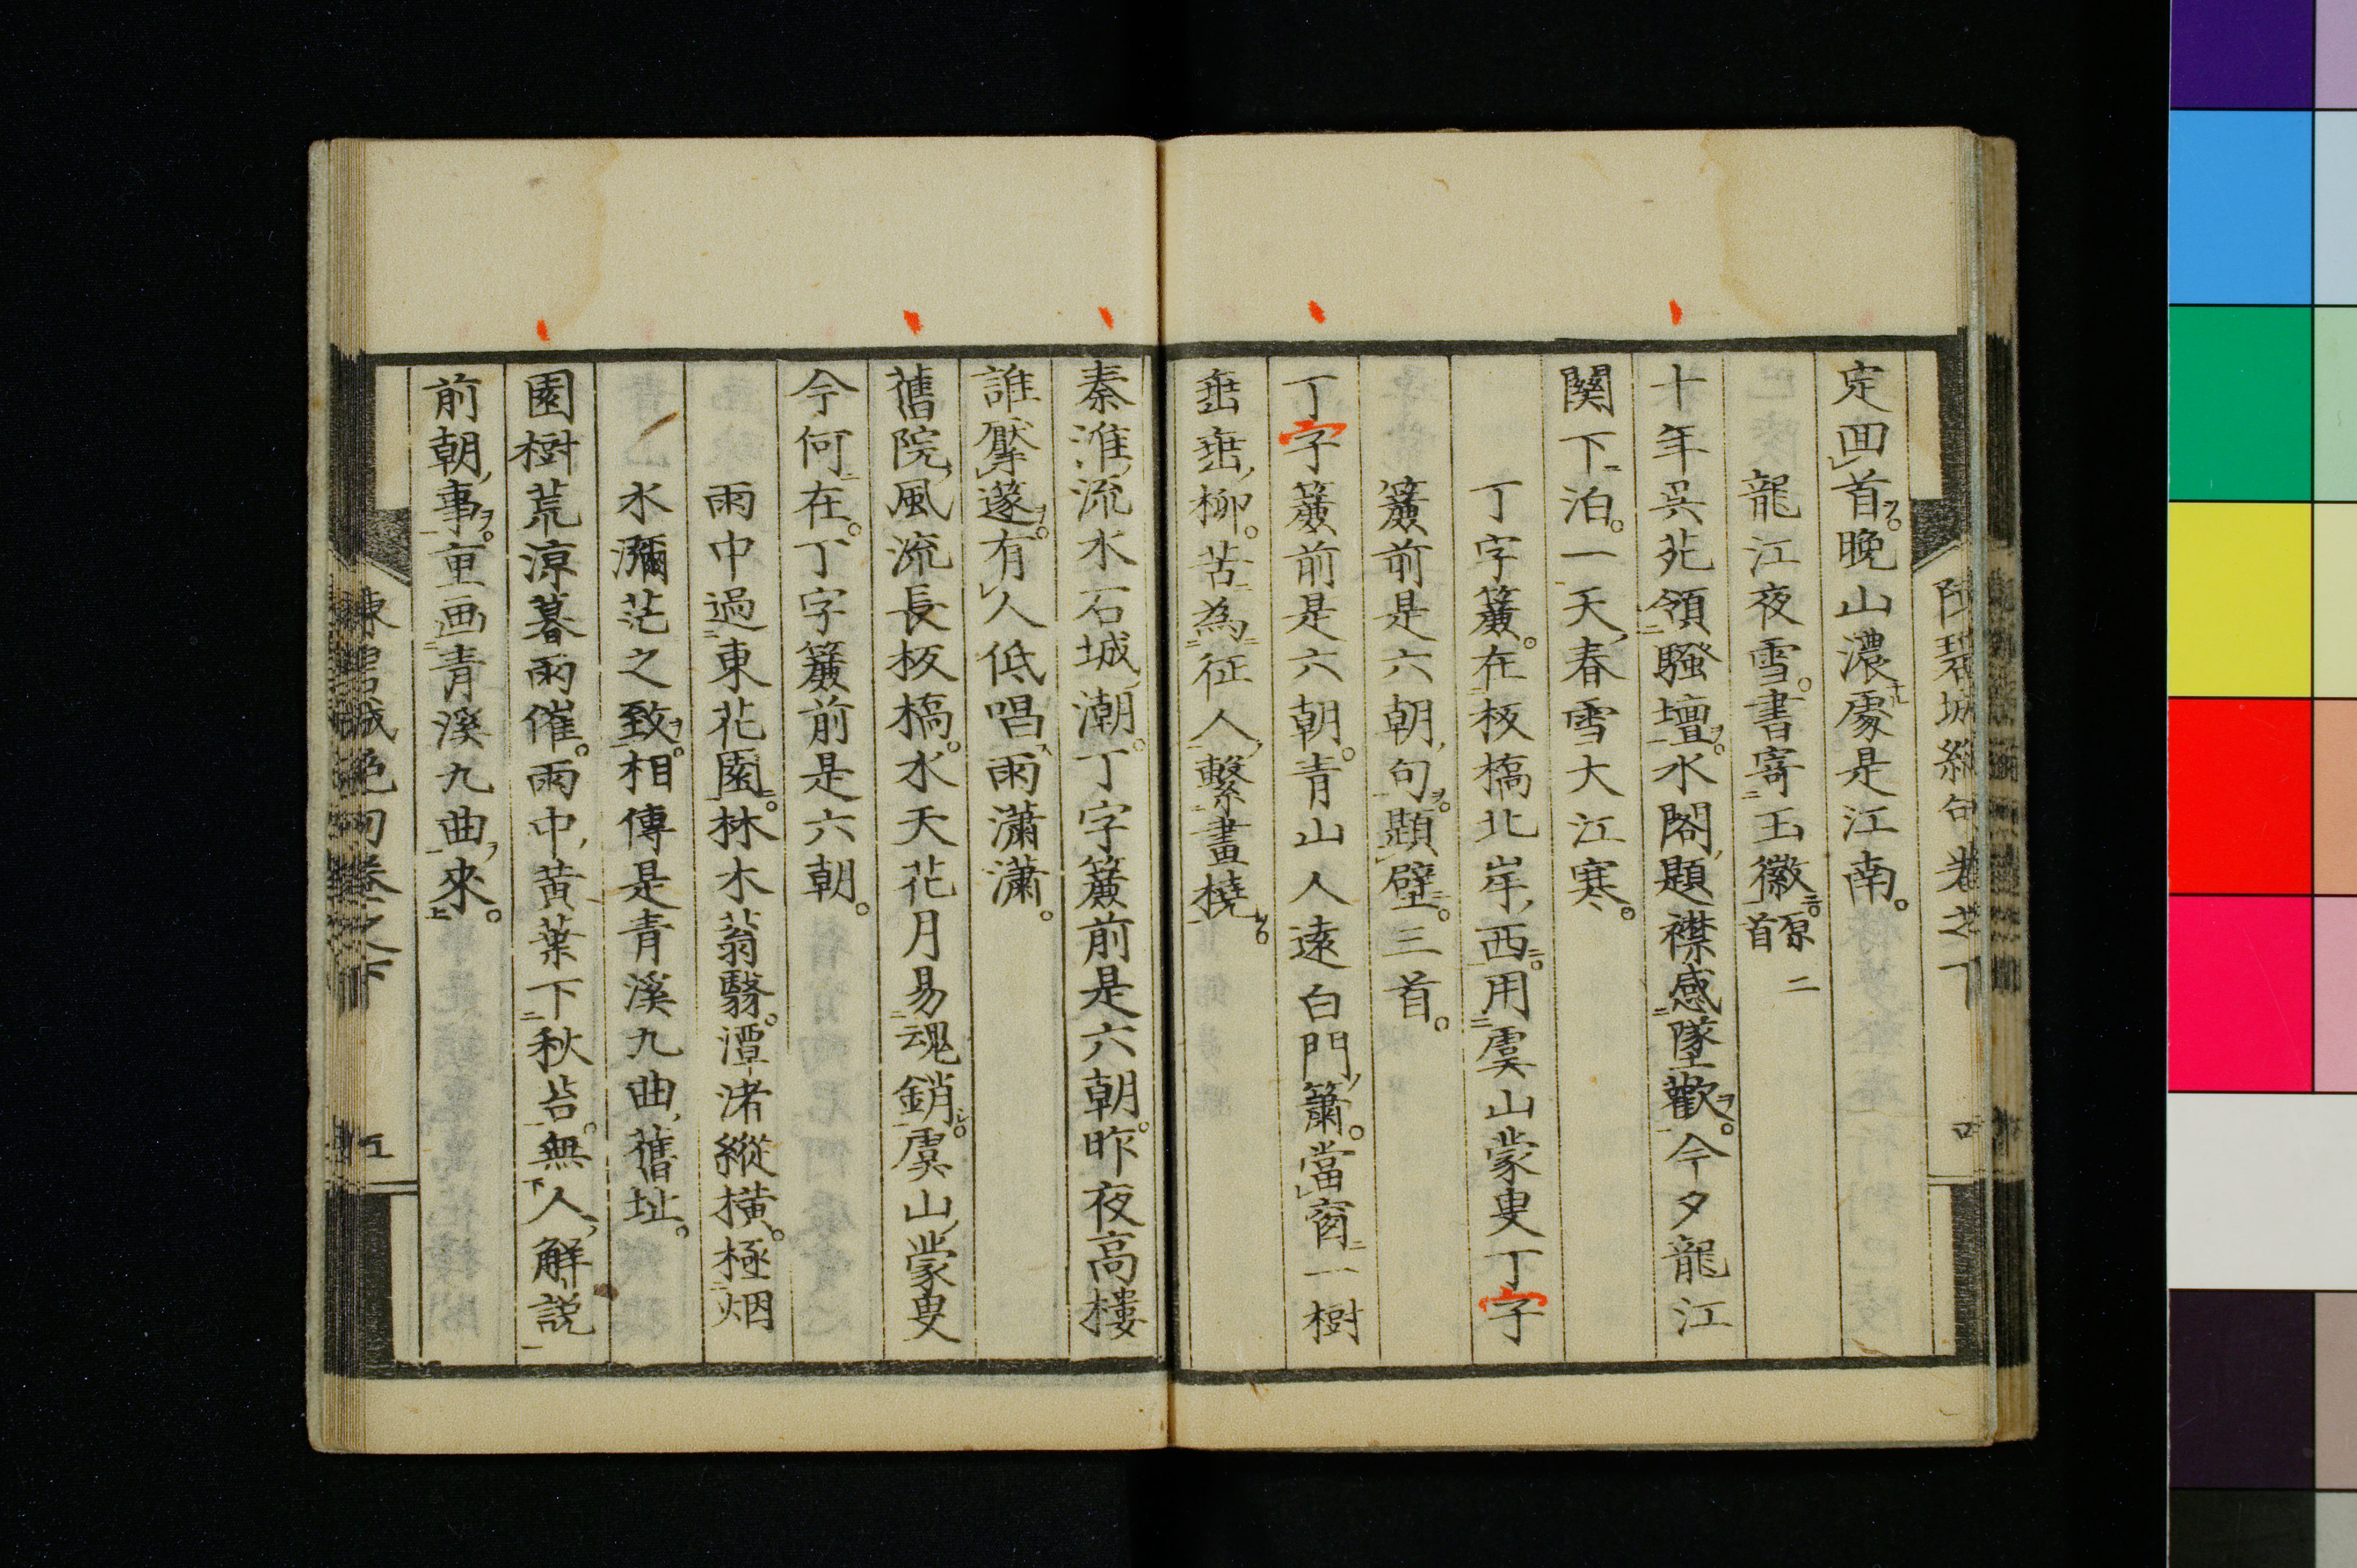 定回首晚山濃處是江南
龍江夜雪書寄玉徽原二首
十年吳苑領騷壇水閣題襟感墜歡今夕龍江
関下泊一天春雪大江寒
丁字簾在板橋北岸西用虞山蒙叟丁字
簾前是六朝句題壁三首
丁字簾前是六朝青山人遠白門簫當窗一樹
垂垂柳苦為征人繫畫橈
秦淮流水石城潮丁字簾前是六朝昨夜高樓
誰擪篴有人低唱雨瀟瀟
舊院風流長板橋水天花月易魂銷虞山蒙叟
今何在丁字簾前是六朝
雨中過東花園林木蓊翳潭渚縱橫極烟
水瀰茫之致相傳是青溪九曲舊址
園樹荒涼暮雨催雨中黃葉下秋苔無人解説
前朝事重画青溪九曲來
陳碧城絶句卷之下